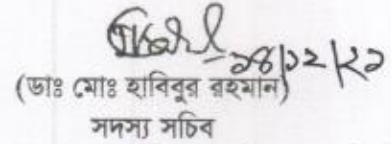 ১৪/১২/২১
(ডাঃ মোঃ হাবিবুর রহমান)
সদস্য সচিব